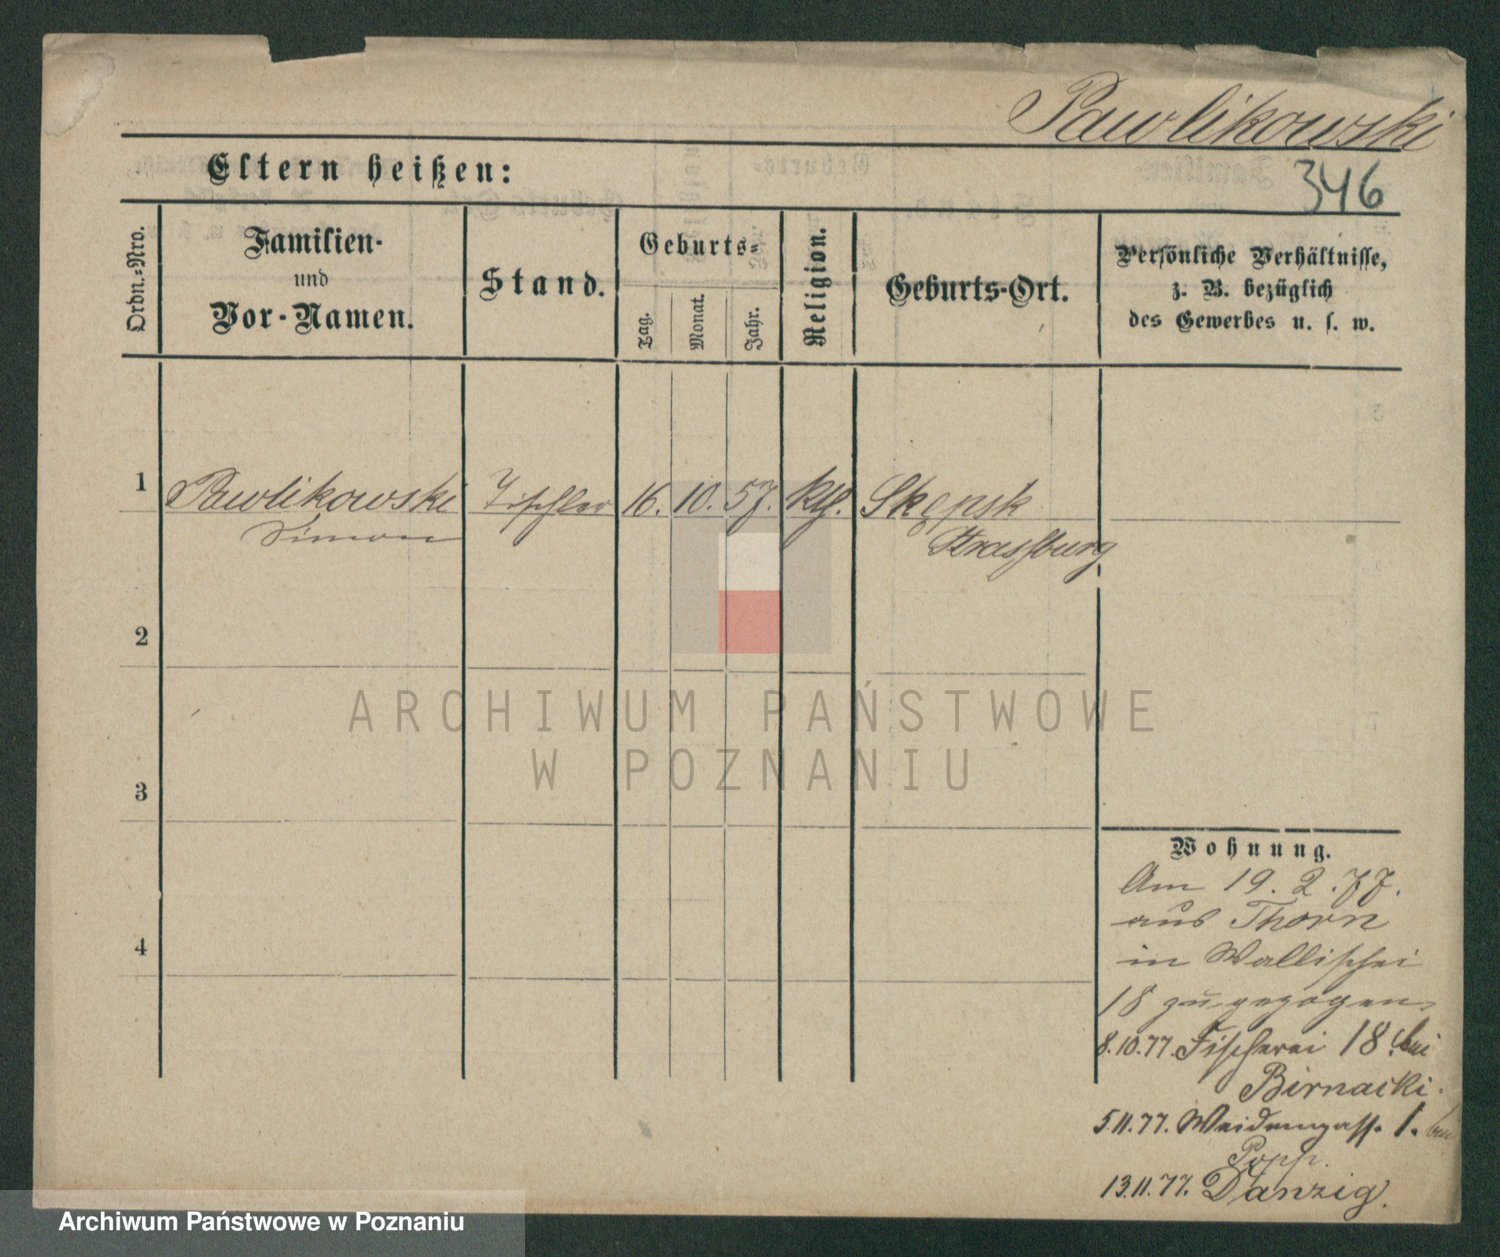 Pawlikowski
Eltern heißen:
346
Ordn.-Nro.
Familien-
und
Vor-Namen.
Stand.
Geburts-
Tag.
Monat.
Jahr.
Religion.
Geburts-Ort.
Persönliche Verhältnisse,
z. B. bezüglich
des Gewerbes u. s. w.
1
Pawlikowski
Simon
Tischler
16.
10.
57.
kth.
Skępsk
Strassburg
2
3
4
Wohnung.
Am 19. 2. 77.
aus Thorn
in Wallischei
18 zugezogen
8.10.77. Fischerei 18 bei
Birnacki.
5.11.77. Weidengasse 1. bei
Popp.
13.11.77. Danzig.
ARCHIWUM PAŃSTWOWE
W POZNANIU
Archiwum Państwowe w Poznaniu